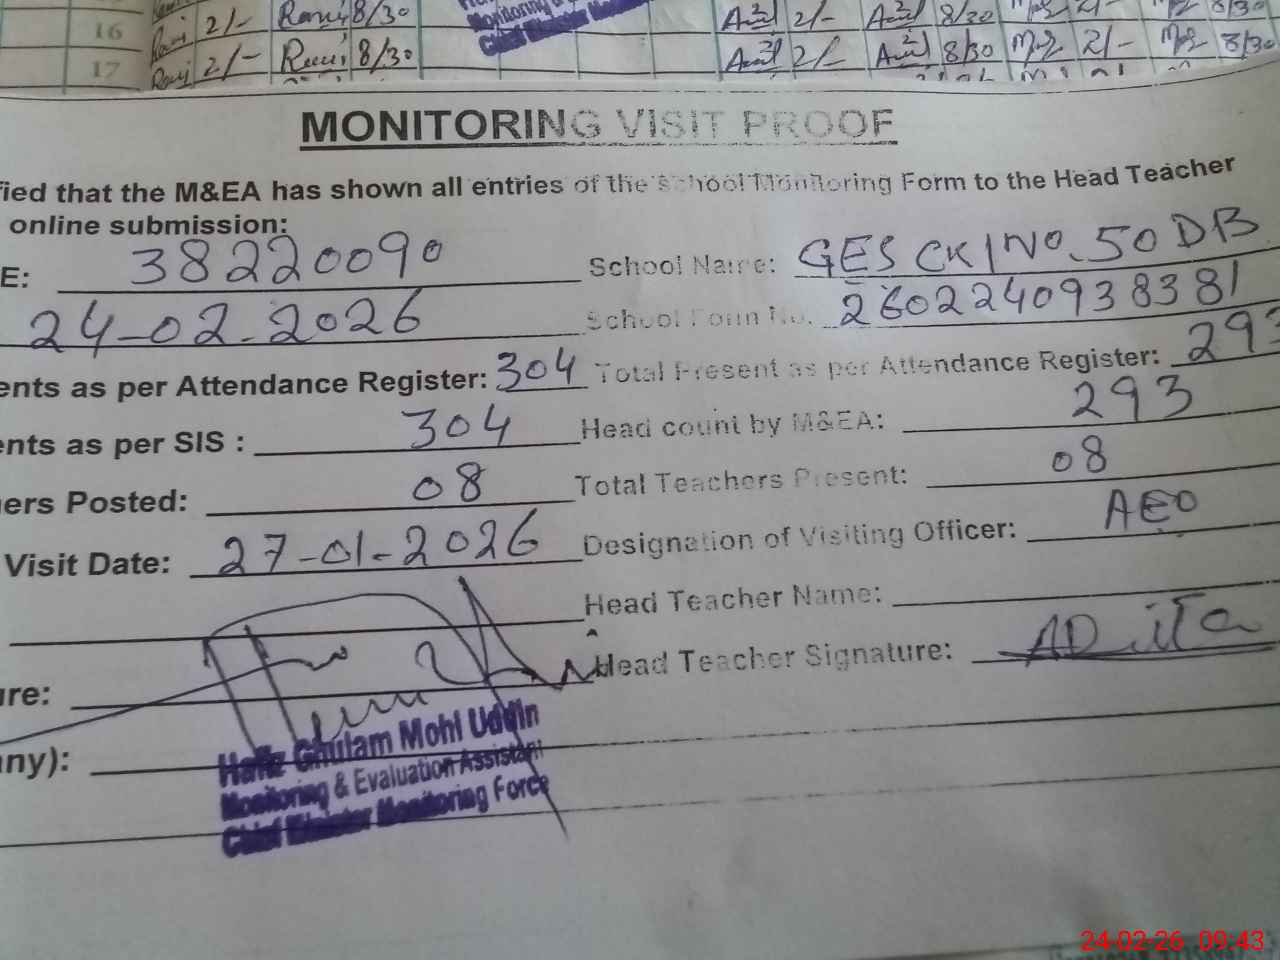 16 2/- 8/30 2/- 8/30 2/- 8/30
17 2/- 8/30 2/- 8/30 2/- 8/30
MONITORING VISIT PROOF
fied that the M&EA has shown all entries of the School Monitoring Form to the Head Teacher
online submission:
E: 38220090 School Name: GES CK/No. 50 DB
24-02-2026 School Form No. 2602240938381
ents as per Attendance Register: 304 Total Present as per Attendance Register: 293
ents as per SIS : 304 Head count by M&EA: 293
ers Posted: 08 Total Teachers Present: 08
Visit Date: 27-01-2026 Designation of Visiting Officer: AEO
Head Teacher Name:
ure: Head Teacher Signature:
Hafiz Ghulam Mohi Uddin
any): Monitoring & Evaluation Assistant
Chief Minister Monitoring Force
24-02-26 09:43